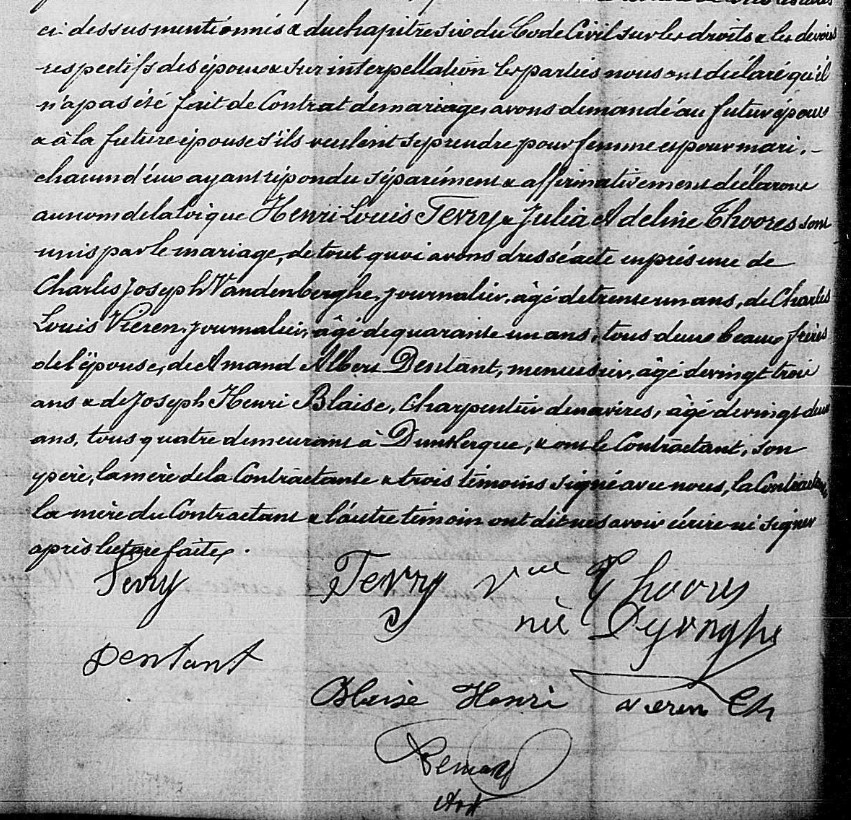 ci-dessus mentionnés & du chapitre six du Code Civil sur les droits & les devoirs
respectifs des époux & sur interpellation les parties nous ont déclaré qu'il
n'a pas été fait de Contrat de mariage, avons demandé au futur époux
& à la future épouse s'ils veulent se prendre pour femme et pour mari. -
chacun d'eux ayant répondu séparément & affirmativement déclarons
au nom de la loi que Henri Louis Terry & Julia Adeline Thoores sont
unis par le mariage, de tout quoi avons dressé acte en présence de
Charles Joseph Vandenberghe, journalier, âgé de trente un ans, de Charles
Louis Vieren, journalier, âgé de quarante un ans, tous deux beaux frères
de l'épouse, de Amand Albert Dentant, menuisier, âgé de vingt trois
ans & de Joseph Henri Blaise, Charpentier de navires, âgé de vingt deux
ans, tous quatre demeurant à Dunkerque, & ont le Contractant, son
père, la mère de la Contractante & trois témoins signé avec nous, la Contractante,
la mère du Contractant & l'autre témoin ont dit ne savoir écrire ni signer
après lecture faite.
Terry Terry Vve Thoores
née
Dentant
Blaise Henri Vieren Ch